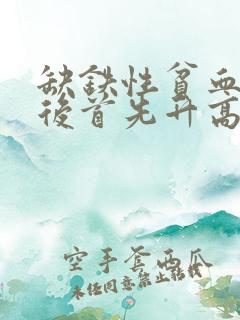 缺鉄性貧血
後首先升高
空手套西瓜
未经同意禁止转载